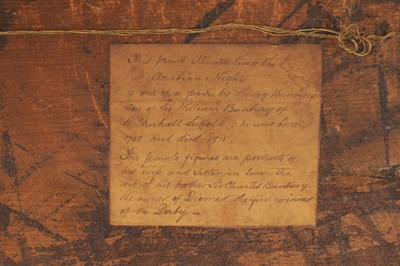 This print illustrating the
Arabian Nights
is one of a pair by Henry Bunbury
Son of Sir William Bunbury of
Mildenhall Suffolk, he was born
1750 and died 1811.
The female figures are portraits of
his wife and Sister in law. the
wife of his brother Sir Charles Bunbury
the owner of Diomed the first winner
of the Derby —